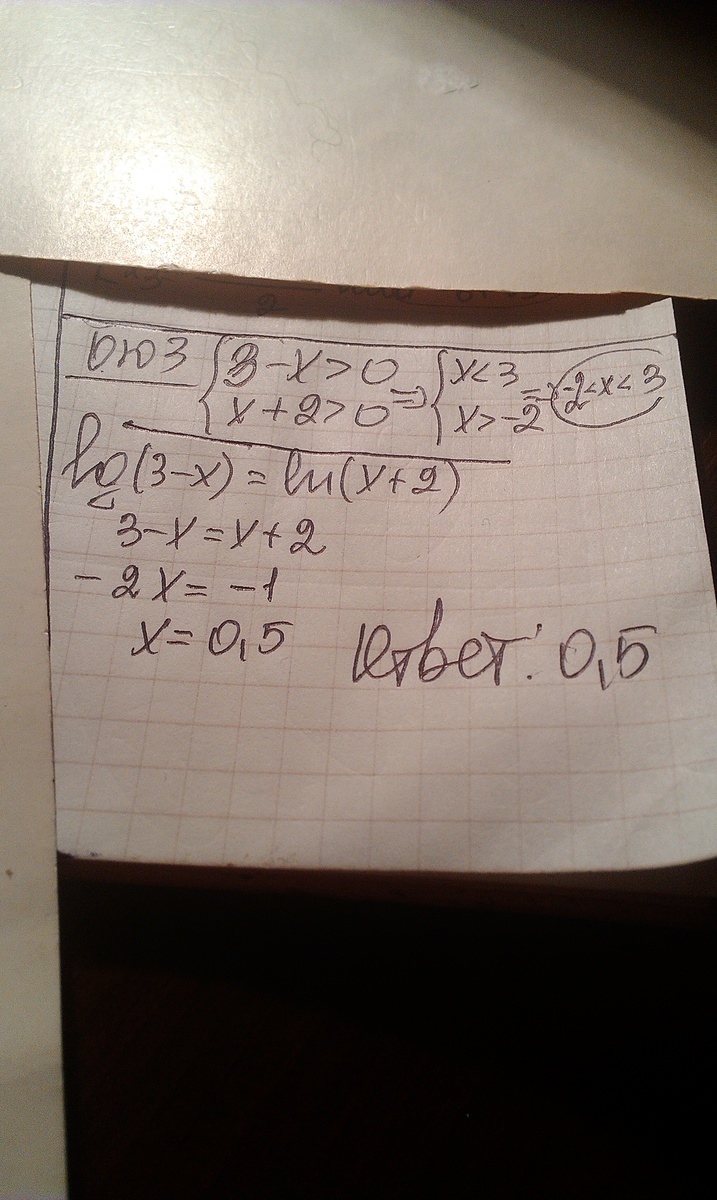 ОДЗ { 3-x>0 => { x<3 => -2<x<3
x+2>0 x>-2
(3-x) = ln(x+2)
3-x=x+2
-2x=-1
x=0,5 Ответ: 0,5